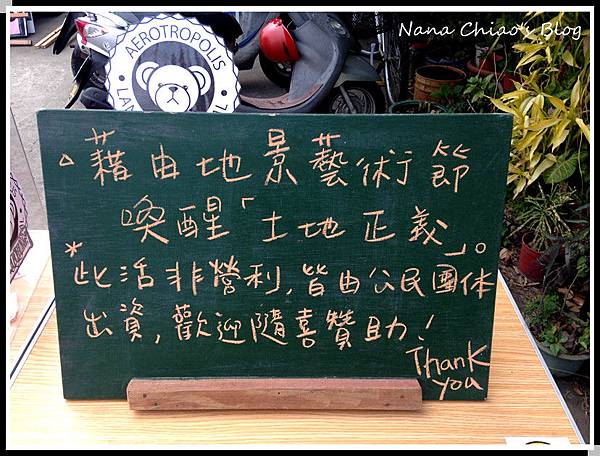 Nana Chiao's Blog
AEROTROPOLIS
△藉由地景藝術節
喚醒「土地正義」。
*此活非營利,皆由公民團体
出資,歡迎隨喜贊助!
Thank
you